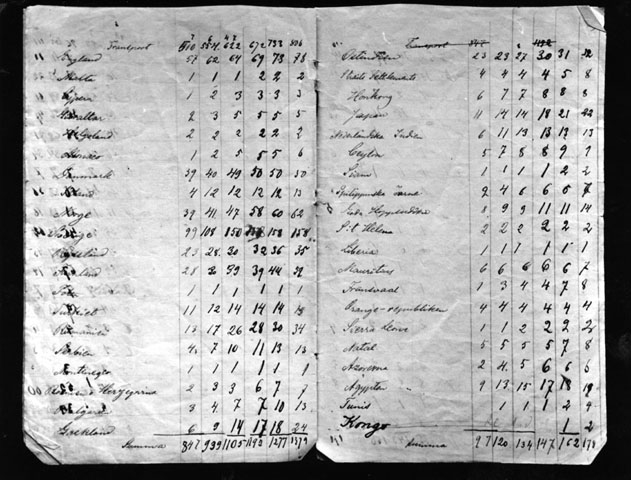 Transport 610 554 622 672 733
England 57 62 64 69 73 78
Malta 1 1 1 2 2 2
Cypern 1 2 3 3 3 3
Gibraltar 2 3 5 5 5 5
Helgoland 2 2 2 2 2 2
1 2 5 5 5 6
Danmark 39 40 49 50 50 50
Island 4 12 12 12 12 13
Norge 39 41 47 58 60 62
Sverige 99 108 150 158 158
Ryssland 23 28 30 32 36 35
Finland 39 44
1 1 1 1 1 1
Turkiet 11 12 14 14 14
Rumänien 13 17 26 28 30 34
Serbien 4 7 10 11 13 13
Montenegro 1 1 1 1 1 1
Herzegovina 2 3 3 6 7 7
3 4 7 7 10 13
Grekland 6 9 14 17 18 24
Summa 847 939 1105 1192 1277
Transport
Ostindien 23 23 27 30 31
Straits Settlements 4 4 4 4 5 8
Honkong 6 7 7 8 8 8
Japan 11 14 14 18 21 22
Nederländska Indien 6 11 13 13 13 13
Ceylon 5 7 8 8 9 9
Siam 1 1 1 1 2 2
Philippinska Öarne 2 4 6 6 6 7
Goda Hoppsudden 8 9 9 11 11 14
S:t Helena 2 2 2 2 2 2
Liberia 1 1 1 1 1
Mauritius 6 6 6 6 6 7
Transvaal 1 3 4 4 7 8
Oranje-republiken 4 4 4 4 4 4
Sierra Leone 1 1 2 2 2 2
Natal 5 5 5 5 7 8
Azorerna 2 4 5 6 6
Egypten 9 13 15 17 18 19
Tunis 1 1 1 2
Kongo 1 2
Summa 97 120 134 147 162